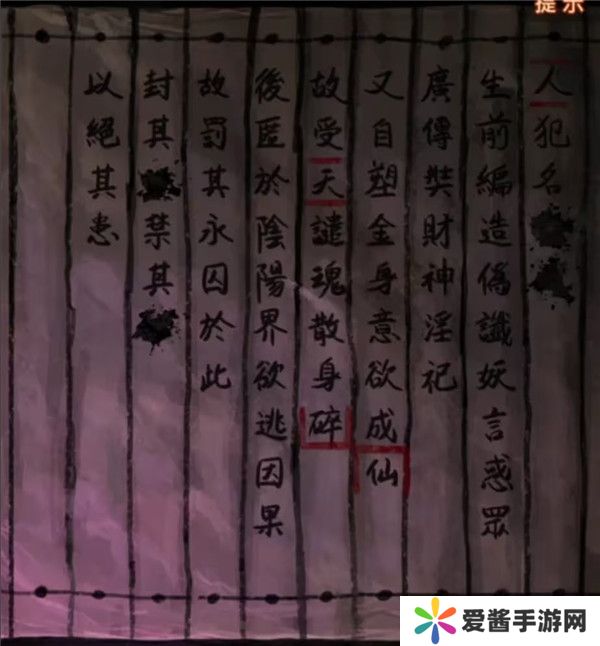 提示
人犯名
生前編造偽讖妖言惑眾
廣傳奘財神淫祀
又自塑金身意欲成仙
故受天譴魂散身碎
後匿於陰陽界欲逃因果
故罰其永囚於此
封其禁其
以絕其患
爱酱手游网